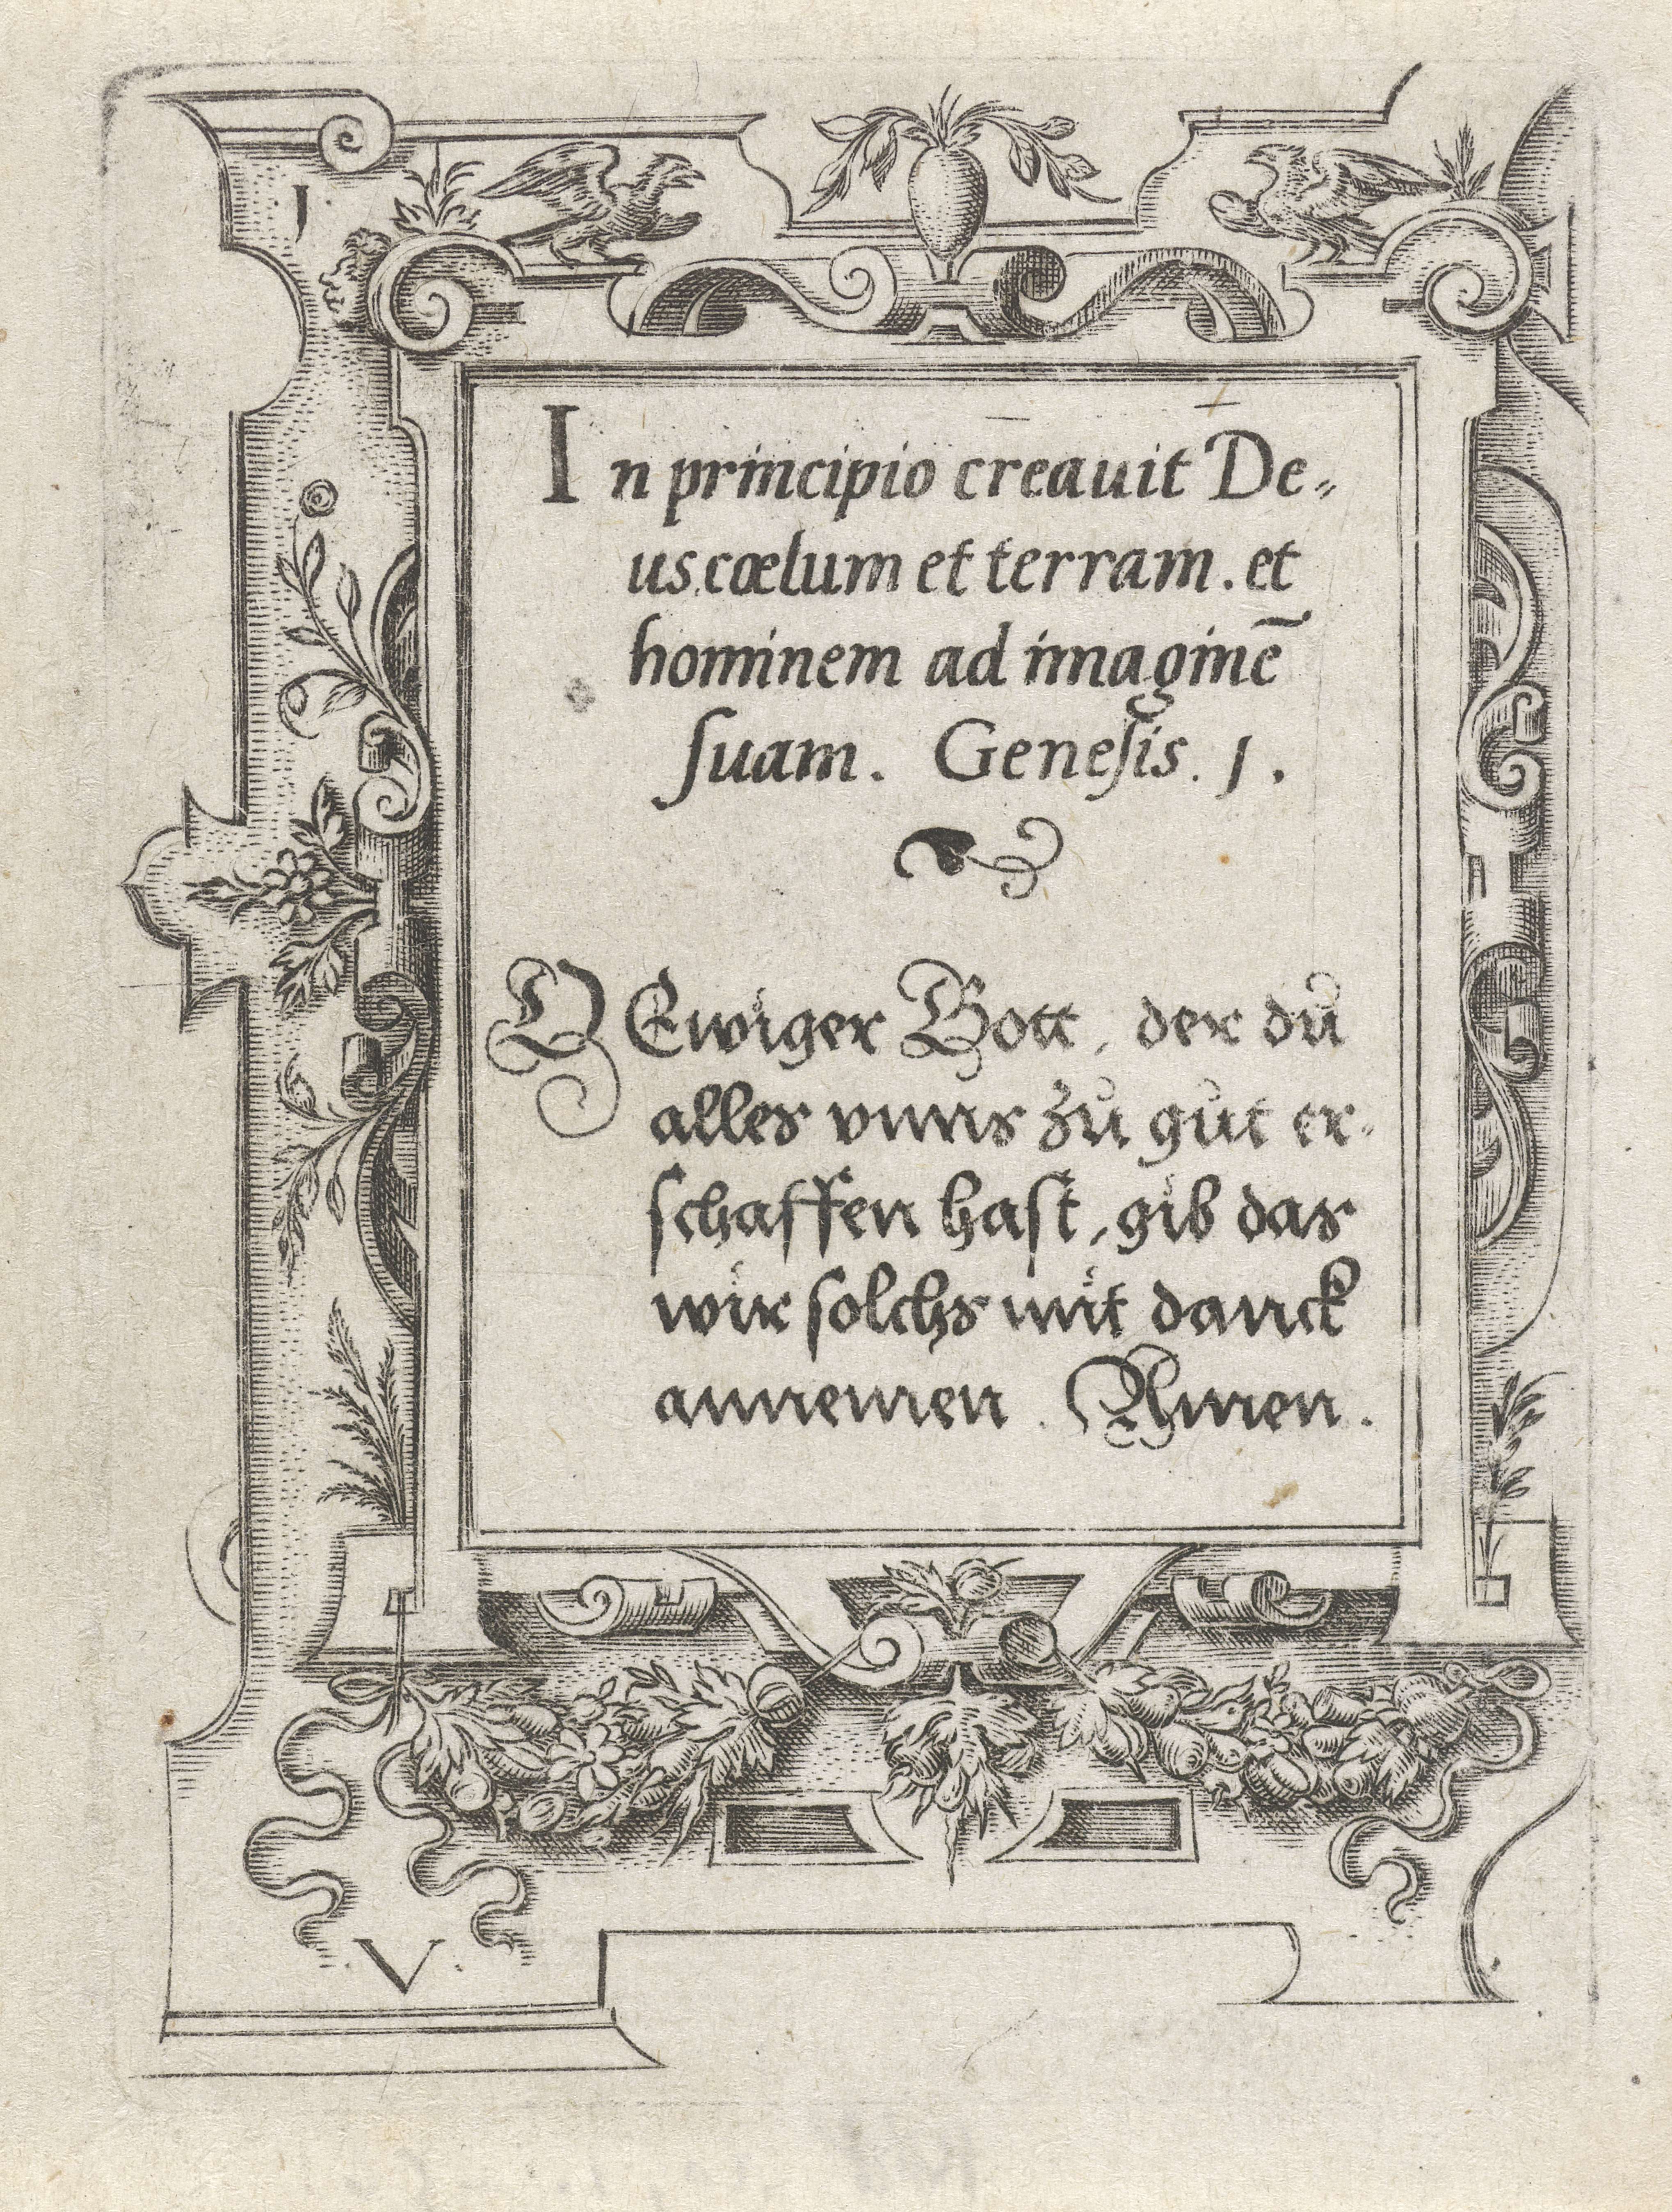 1.
In principio creauit De„
us cœlum et terram. et
hominem ad imaginē
ſuam. Geneſis. 1.
O Ewiger Gott, der dů
alles vnns zů gůt er„
schaffen haſt, gib das
wir solchs mit danck
annemen. Amen.
V